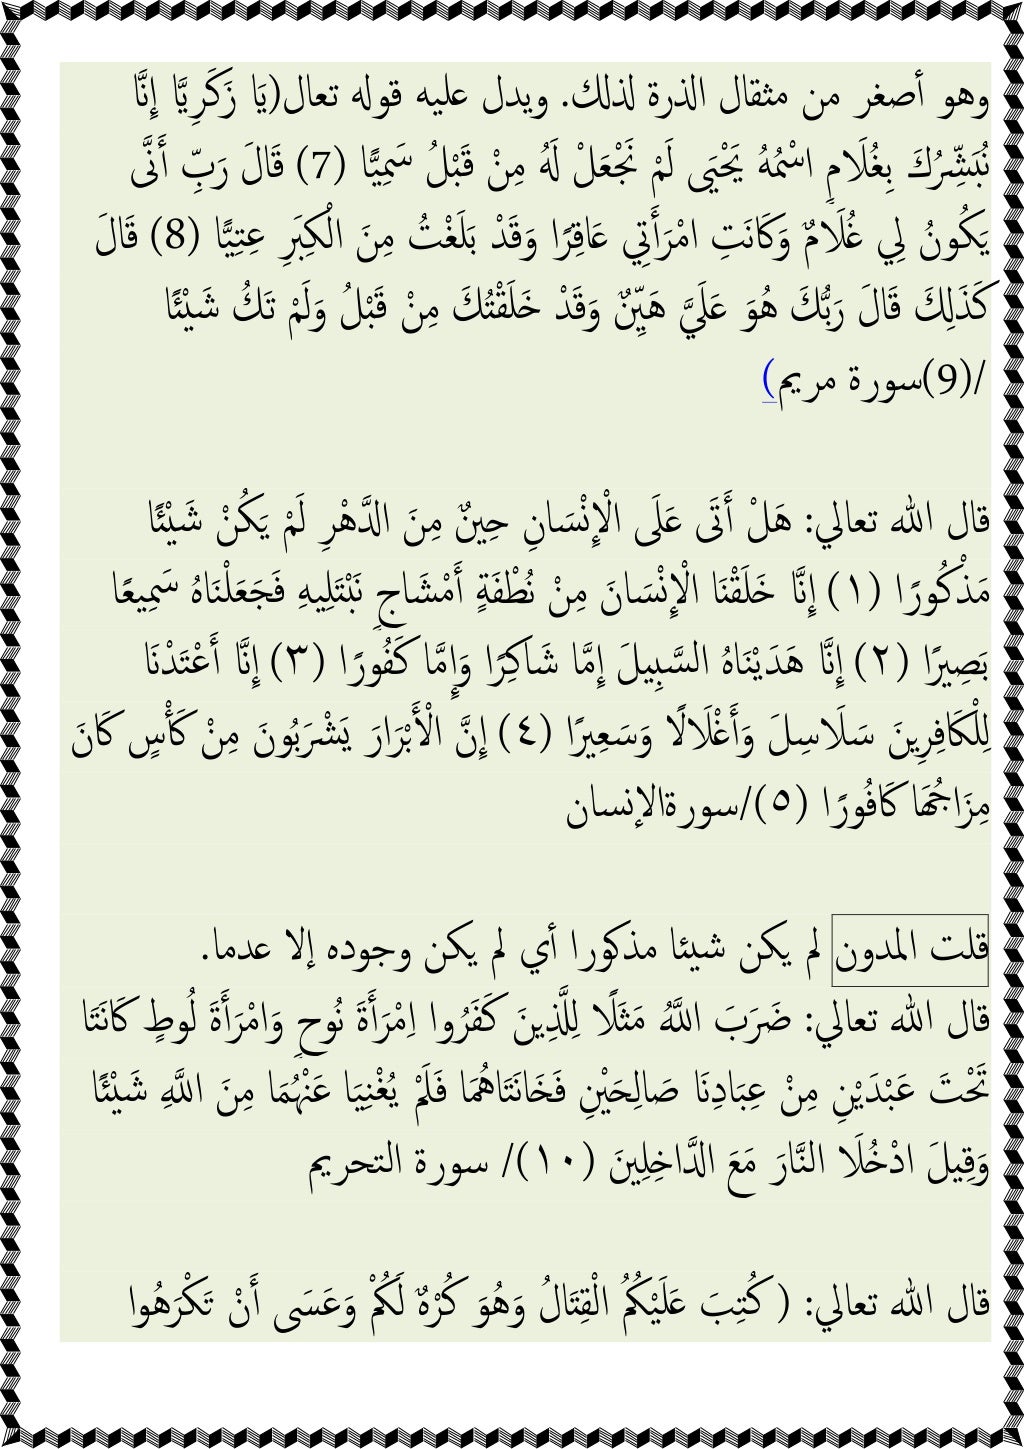 وهو أصغر من مثقال الذرة لذلك. ويدل عليه قوله تعال(يَا زَكَرِيَّا إِنَّا
نُبَشِّرُكَ بِغُلَامٍ اسْمُهُ يَحْيَى لَمْ نَجْعَلْ لَهُ مِنْ قَبْلُ سَمِيًّا (7) قَالَ رَبِّ أَنَّى
يَكُونُ لِي غُلَامٌ وَكَانَتِ امْرَأَتِي عَاقِرًا وَقَدْ بَلَغْتُ مِنَ الْكِبَرِ عِتِيًّا (8) قَالَ
كَذَلِكَ قَالَ رَبُّكَ هُوَ عَلَيَّ هَيِّنٌ وَقَدْ خَلَقْتُكَ مِنْ قَبْلُ وَلَمْ تَكُ شَيْئًا
/(9)سورة مريم)
قال الله تعالي: هَلْ أَتَى عَلَى الْإِنْسَانِ حِينٌ مِنَ الدَّهْرِ لَمْ يَكُنْ شَيْئًا
مَذْكُورًا (١) إِنَّا خَلَقْنَا الْإِنْسَانَ مِنْ نُطْفَةٍ أَمْشَاجٍ نَبْتَلِيهِ فَجَعَلْنَاهُ سَمِيعًا
بَصِيرًا (٢) إِنَّا هَدَيْنَاهُ السَّبِيلَ إِمَّا شَاكِرًا وَإِمَّا كَفُورًا (٣) إِنَّا أَعْتَدْنَا
لِلْكَافِرِينَ سَلَاسِلَ وَأَغْلَالًا وَسَعِيرًا (٤) إِنَّ الْأَبْرَارَ يَشْرَبُونَ مِنْ كَأْسٍ كَانَ
مِزَاجُهَا كَافُورًا (٥)/سورةالإنسان
قلت المدون لم يكن شيئا مذكورا أي لم يكن وجوده إلا عدما.
قال الله تعالي: ضَرَبَ اللَّهُ مَثَلًا لِلَّذِينَ كَفَرُوا اِمْرَأَةَ نُوحٍ وَامْرَأَةَ لُوطٍ كَانَتَا
تَحْتَ عَبْدَيْنِ مِنْ عِبَادِنَا صَالِحَيْنِ فَخَانَتَاهُمَا فَلَمْ يُغْنِيَا عَنْهُمَا مِنَ اللَّهِ شَيْئًا
وَقِيلَ ادْخُلَا النَّارَ مَعَ الدَّاخِلِينَ (١٠)/ سورة التحريم
قال الله تعالي: ( كُتِبَ عَلَيْكُمُ الْقِتَالُ وَهُوَ كُرْهٌ لَكُمْ وَعَسَى أَنْ تَكْرَهُوا